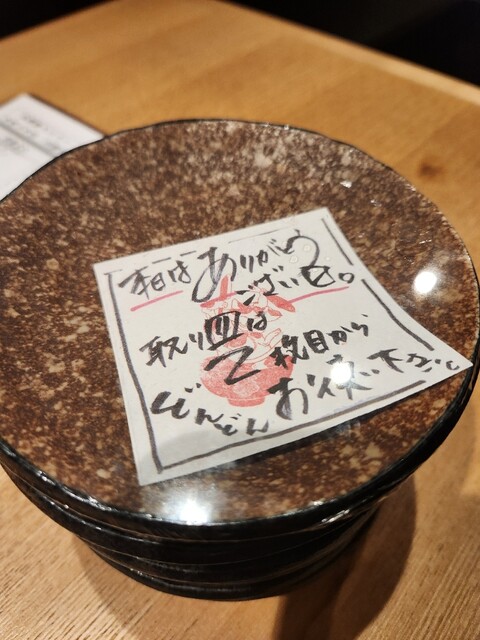 本日はありがとう
ございます。
取り皿は
2枚目から
どんどん お使い下さい